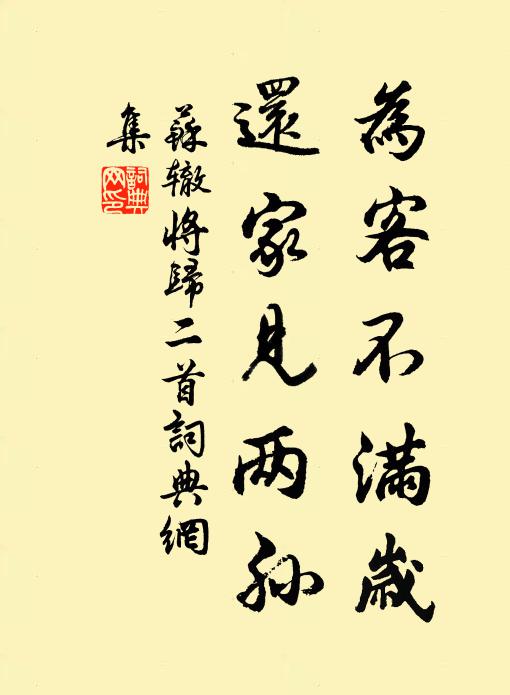 為客不滿歲
還家見两孫
蘇辙将歸二首詞典網
集
詞典
网印